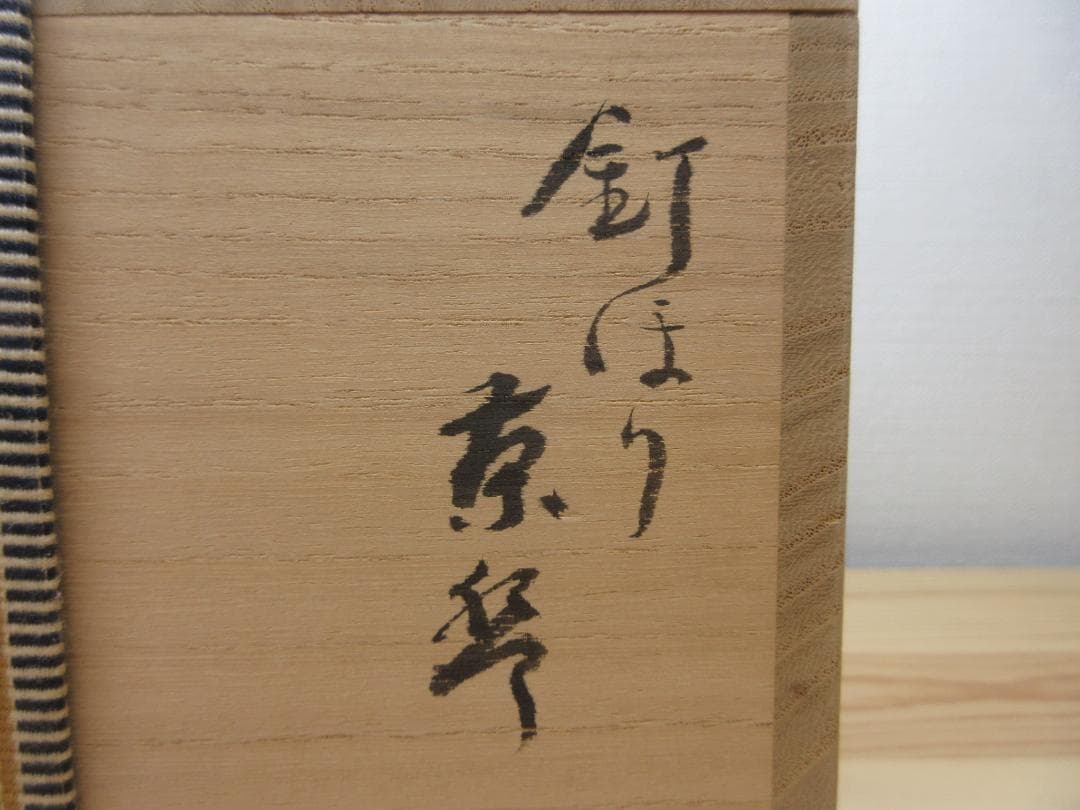 釘ほり
京琴